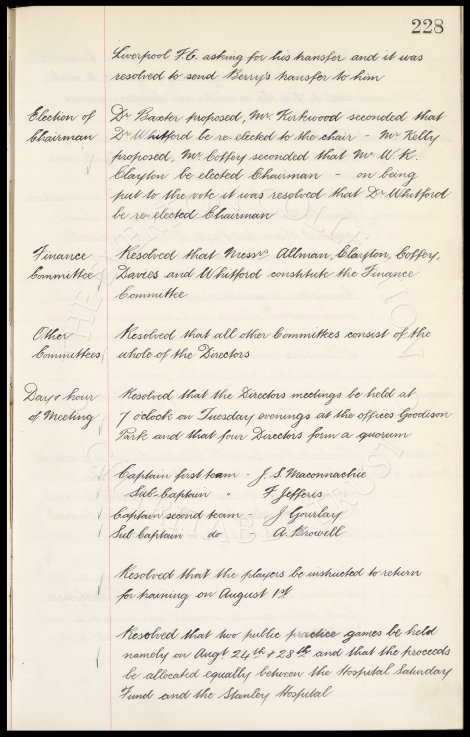 228
Liverpool F.C. asking for his transfer and it was
resolved to send Berry's transfer to him
Election of Chairman
Dr Baxter proposed, Mr Kirkwood seconded that
Dr Whitford be re-elected to the chair - Mr Kelly
proposed, Mr Coffey seconded that Mr W. R.
Clayton be elected Chairman - on being
put to the vote it was resolved that Dr Whitford
be re-elected Chairman
Finance Committee
Resolved that Messrs Allman, Clayton, Coffey,
Davies and Whitford constitute the Finance
Committee
Other Committees
Resolved that all other Committees consist of the
whole of the Directors
Day & hour of Meeting
Resolved that the Directors meetings be held at
7 o'clock on Tuesday evenings at the offices Goodison
Park and that four Directors form a quorum
Captain first team - J. S. Maconnachie
Sub-Captain " F Jefferis
Captain second team - J Gourlay
Sub Captain do A. Browell
Resolved that the players be instructed to return
for training on August 1st
Resolved that two public practice games be held
namely on Augt 24th & 28th and that the proceeds
be allocated equally between the Hospital Saturday
Fund and the Stanley Hospital